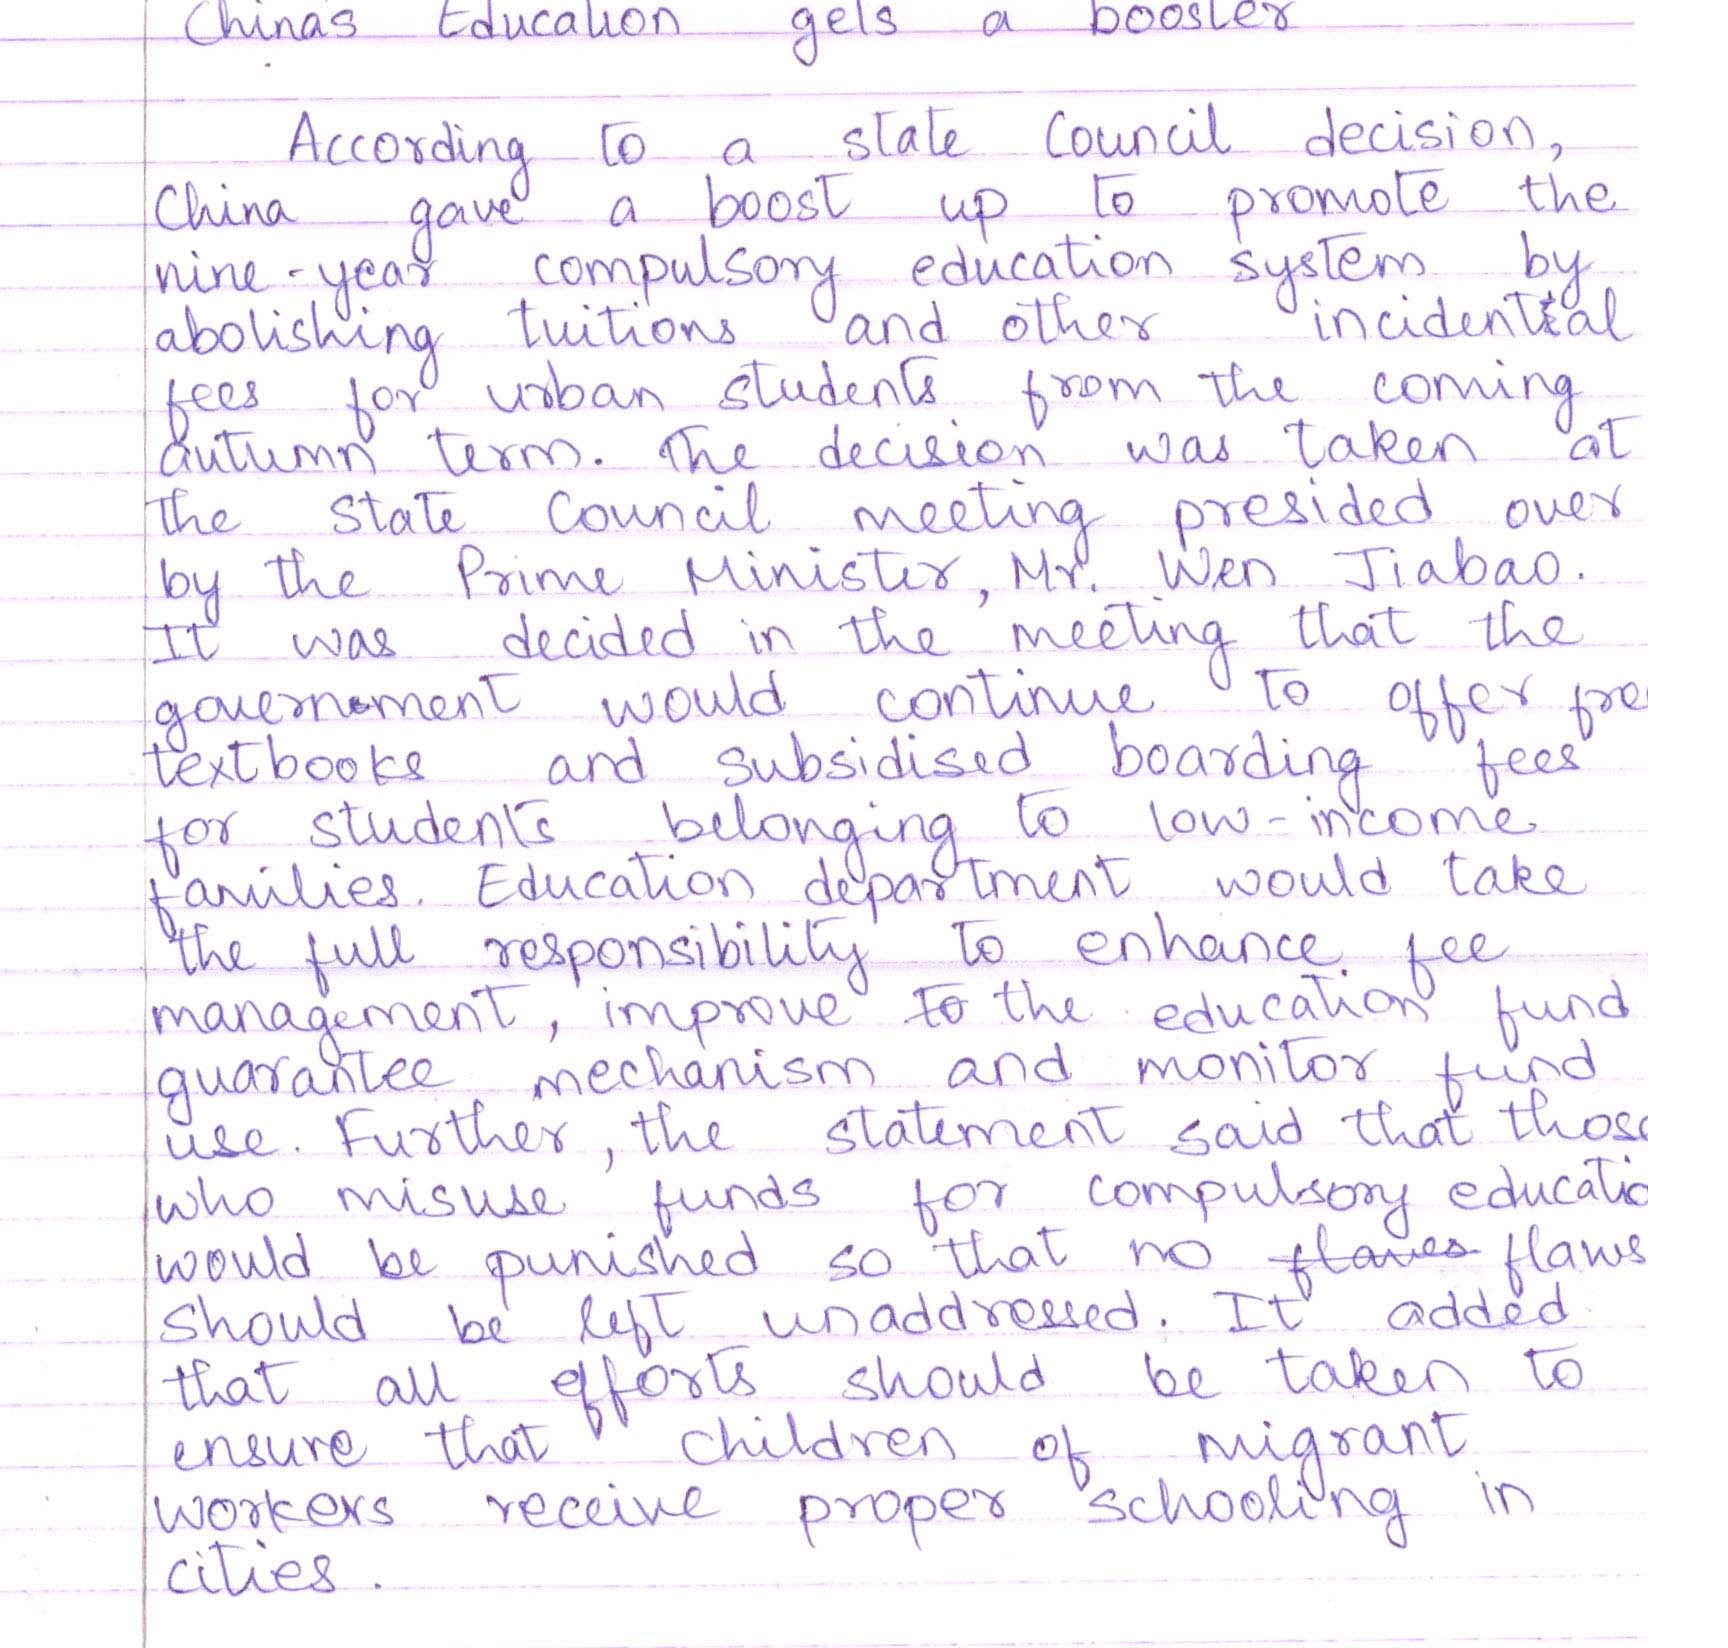 Chinas Education gets a booster
According to a state Council decision,
China gave a boost up to promote the
nine-year compulsory education system by
abolishing tuitions and other incidental
fees for urban students from the coming
autumn term. The decision was taken at
the State Council meeting presided over
by the Prime Minister, Mr. Wen Jiabao.
It was decided in the meeting that the
government would continue to offer fre
textbooks and subsidised boarding fees
for students belonging to low-income
families. Education department would take
the full responsibility to enhance fee
management, improve to the education fund
guarantee mechanism and monitor fund
use. Further, the statement said that those
who misuse funds for compulsory educatio
would be punished so that no flaves flaws
should be left unaddressed. It added
that all efforts should be taken to
ensure that children of migrant
workers receive proper schooling in
cities.